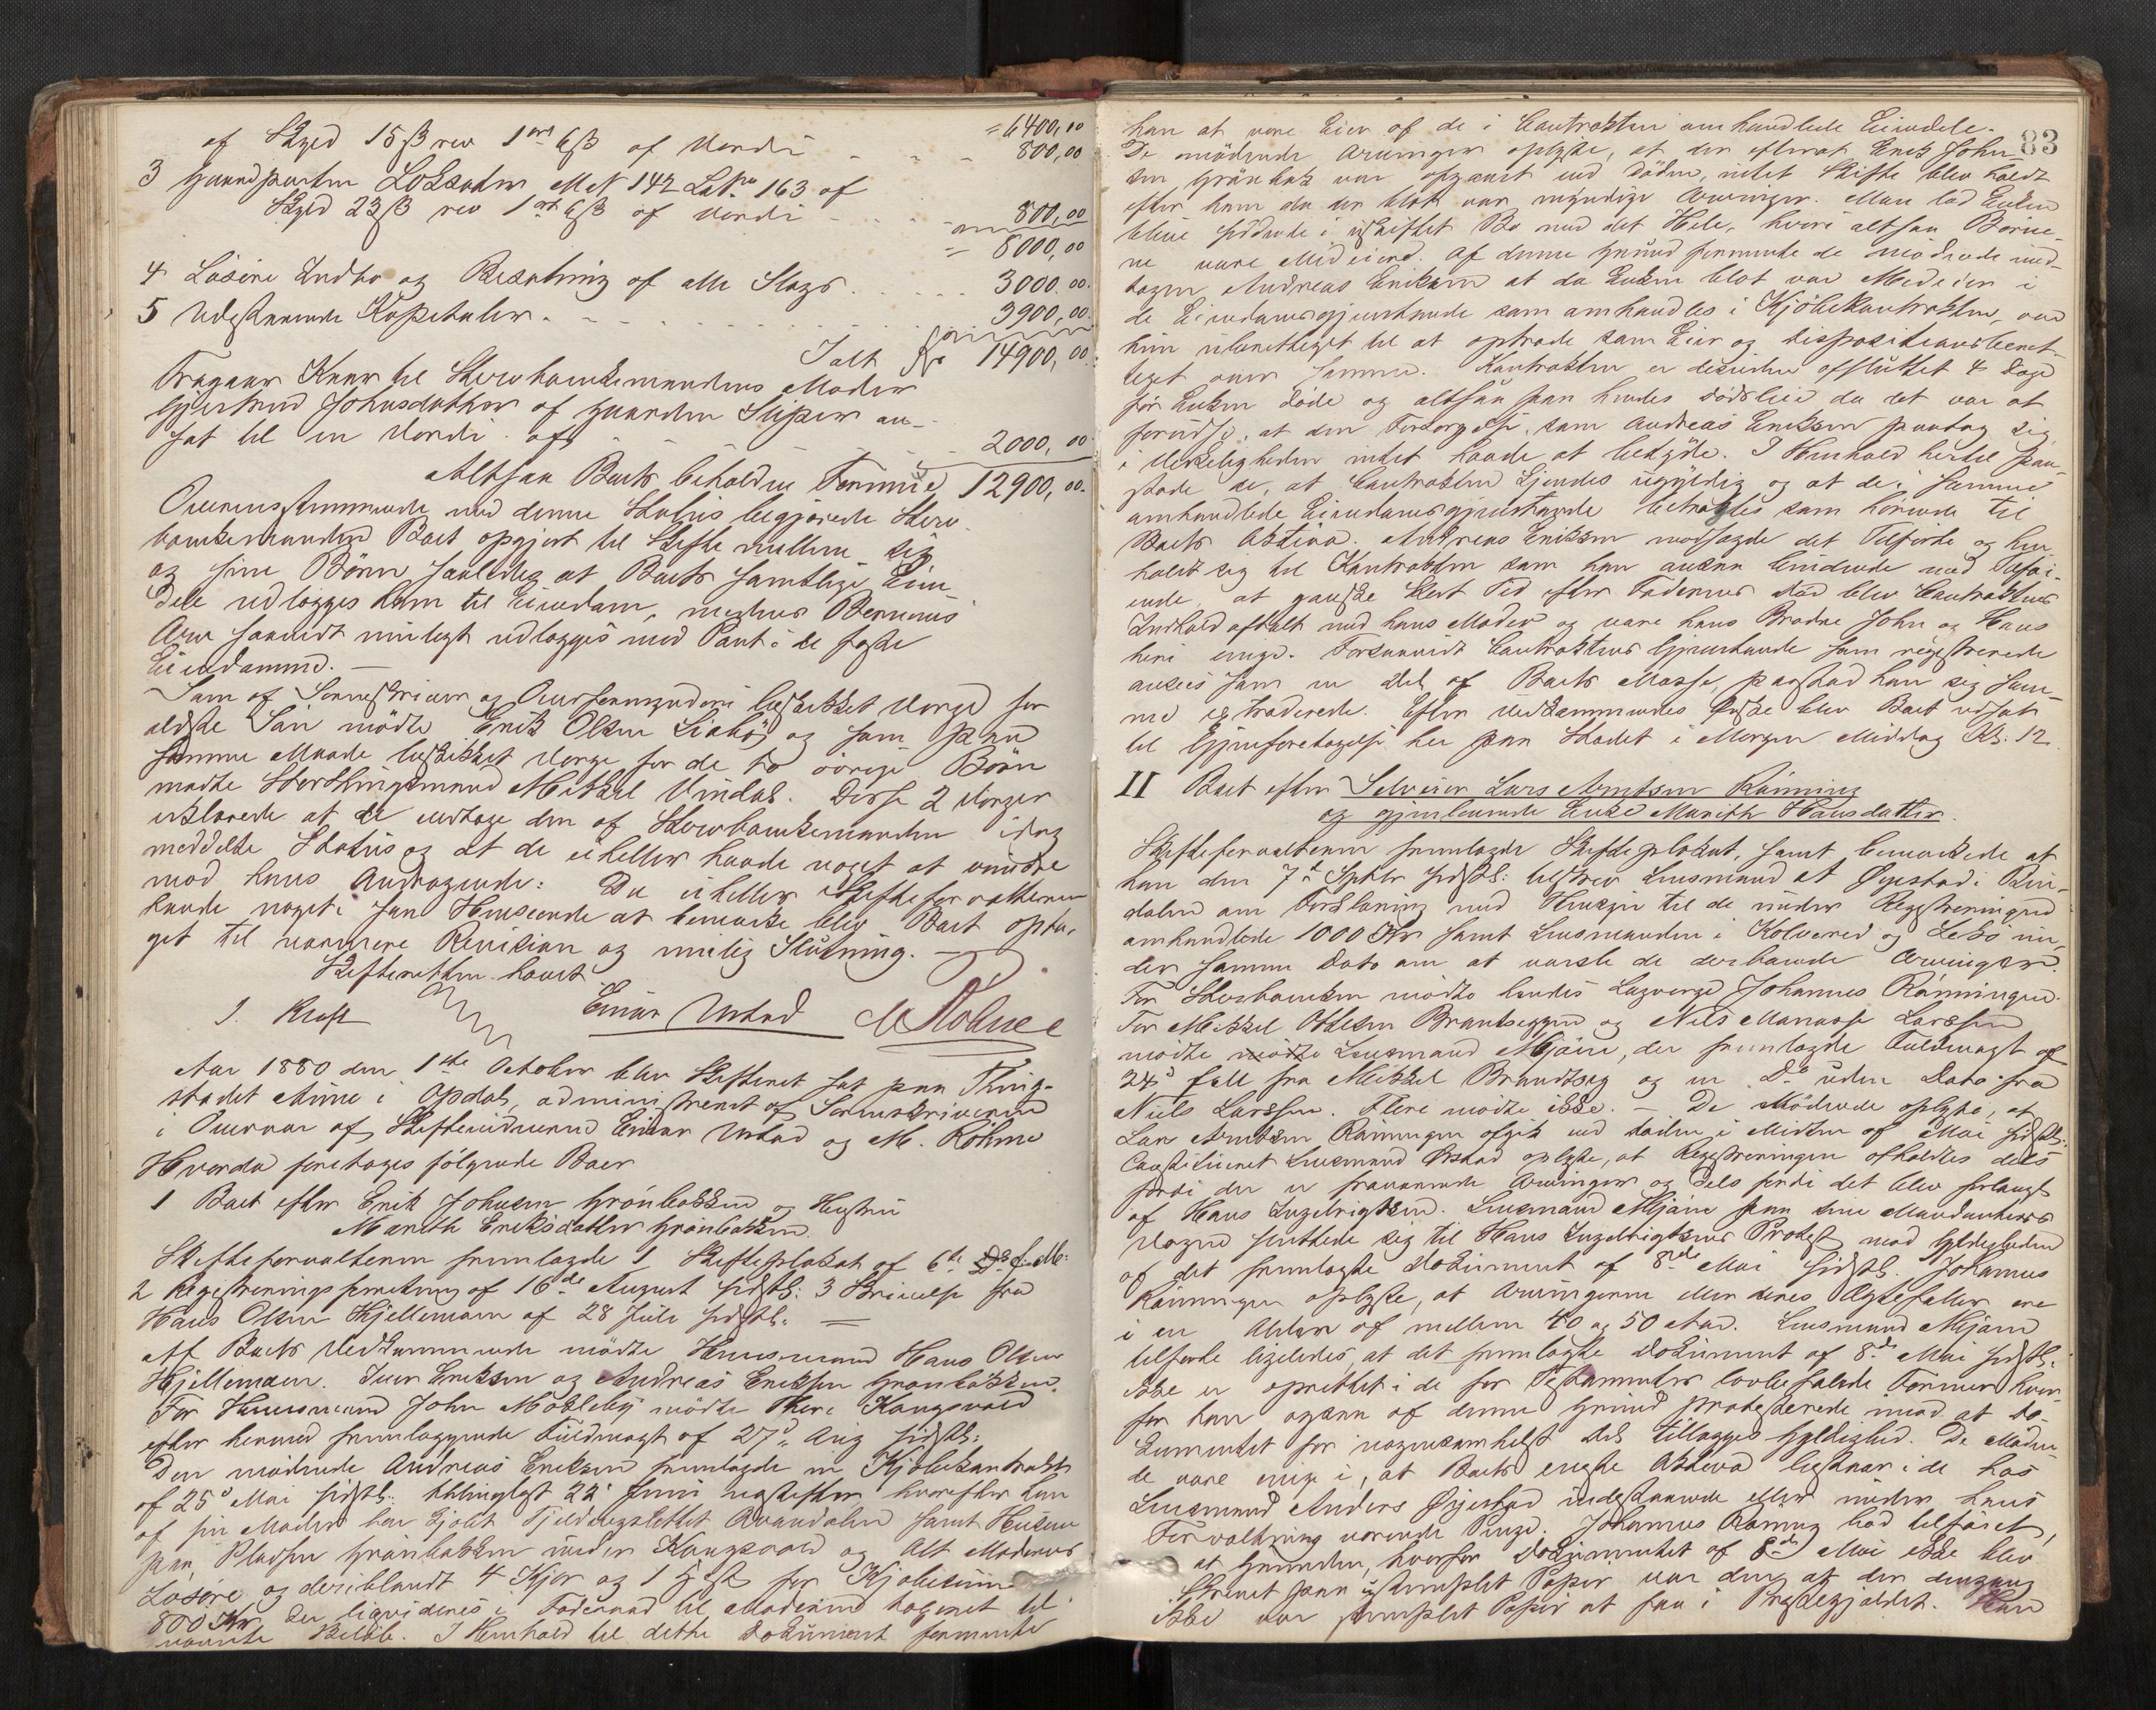 = 6400,00
af Skyld 15 ß rev 1 ort 6 ß af Verdi - - - 800,00
3 Gaardparten Loksalm M N 142 L No 163 af
Skyld 23 ß rev 1 ort 6 ß af Verdi - - - 800,00
= 8000,00
4 Løsøre Indbo og Besætning af alle Slags . . . . 3000.00.
5 Udestaaende Kapitaler. - - . . . . . 3900,00.
Ialt Kr 14900,00.
Fragaar Kaar til Sterbboenkemandens Moder
Gjertrud Johnsdatter af Gaarden Sliper an-
sat til en Verdi af - - - - 2000,00
Altsaa Boets beholdne Formue 12900,00.
Overensstemmende med denne Status begjærede Sterv-
boenkemanden Boet opgjort til Skifte mellem sig
og sine Børn saaledes at Boets samtlige Eien-
dele udlægges ham til Eiendom, medens Børnenes
Arv saavidt muligt udlægges med Pant i de faste
Eiendomme. —
Som af Sorenskriver og Overformynderi beskikket Verge for
ældste Søn mødte Erik Olsen Liabø og som paa
samme Maade beskikket Verge for de to øvrige Børn
mødte Storthingsmand Mikkel Vindal. Disse 2 Verger
erklærede at de vedtage den af Stervboenkemanden idag
meddelte Status og at de eiheller havde noget at erindre
mod hans Andragende. Da eiheller Skifteforvalteren
havde noget i saa Henseende at bemærke blev Boet opta-
get til nærmere Revision og muelig Slutning. —
Skifteretten hævet
J. Kraft Einar Urstad M Röhme
Aar 1880 den 1ste October blev Skifteret sat paa Thing-
stedet Aune i Opdal, administreret af Sorenskriveren
i Overvær af Skiftevidnerne Einar Urstad og M. Röhme
Hvorda foretoges følgende Boer
1 Boet efter Erik Johnsen Grønbakken og Hustru
Marith Eriksdatter Grønbakken.
Skifteforvalteren fremlagde 1, Skifteplakat af 6te f. M:
2 Registreringsforretning af 16de August sidstl: 3 Skrivelse fra
Haus Olsen Hjellemoen af 28 Juli sidstl. —
Af Boets Vedkommende mødte Huusmand Haus Olsen
Hjellemoen. Iver Eriksen og Andreas Eriksen Grønbakken
For Huusmand John Moksleby mødte Thore Kongsvold
efter hermed fremlæggende Fuldmagt af 27d Aug sidstl:
Den mødende Andreas Eriksen fremlagde en Kjøbekontrakt
af 25d Mai sidstl: thinglyst 22 Juni næstefter hvorefter han
af sin Moder har kjøbt Fjeldengslettet samt Husene
paa Pladsen Grønbakken under Kongsvold og Alt Moderens
Løsøre og deriblandt 4 Kjør og 1 Hest for Kjøbesum
800 Kr der liqvideres i Føderaad til Moderen beregnet til
nævnte Beløb. I Henhold til dette Dokument formente
83
han at være Eier af de i Contrakten omhandlede Eiendele.
De mødende Arvinger oplyste, at der efterat Erik John-
sen Grønbak var afgaaet ved Døden, intet Skifte blev holdt
efter ham da der blot var myndige Arvinger. Man lod Enken
blive siddende i uskiftet Bo med det Hele, hvori altsaa Børne-
ne vare Medeiere. Af denne Grund formente de mødende und-
tagen Andreas Eriksen at da Enken blot var Medeier i
de Eiendomsgjenstande som omhandles i Kjøbekontrakten, var
hun uberettiget til at optræde som Eier og dispositionsberet-
tiget over samme. Kontrakten er desuden afsluttet 4 Dage
før Enken døde og altsaa paa hendes Dødsleie da det var at
forudse, at den Forsørgelse, som Andreas Eriksen paatog sig
i Virkeligheden intet havde at betyde. I Henhold hertil paa-
stode de, at Contrakten kjendes ugyldig og at de i samme
omhandlede Eiendomsgjenstande betragtes som hørende til
Boets Aktiva. Andreas Eriksen modsagde det Tilførte og hen-
holdt sig til Kontrakten som han ansaa bindende med Tilføi-
ende, at ganske kort Tid efter Faderens Død blev Contraktens
Indhold aftalt med hans Moder og vare hans Brødre John og Haus
heri enige. Forsaavidt Contraktens Gjenstande som registrerede
ansees som en Del af Boets Masse, paastod han sig sam-
me extraderede. Efter Vedkommendes Ønske blev Boet udsat
til Gjenforetagelse her paa Stedet i Morgen Middag Kl: 12
II Boet efter Selveier Lars Arntsen Rønning
og gjenlevende Enke Marith Hansdatter.
Skifteforvalteren fremlagde Skifteplakat, samt bemærkede at
han den 7d Septbr sidstl: tilskrev Lensmand A Øyestad i Rin-
dalen om Forklaring med Hensyn til de under Registreringen
omhandlede 1000 Kr samt Lensmanden i Kolvered og Lekø un-
der samme Dato om at varsle de derboende Arvinger.
For Stervboenken mødte hendes Lagverge Johannes Rønningen.
For Mikkel Brandtseggen og Nils Larssen
mødte mødte Lensmand Mjøen, der fremlagde Fuldmagt af
24d fell fra Mikkel Brandtseg og en Do uden Dato fra
Niels Larssen. Flere mødte ikke. — De Mødende oplyste, at
Lars Arntsen Rønningen afgik ved Døden i Midten af Mai sidstl:
Constitueret Lensmand Urstad oplyste, at Registreringen afholdtes dels
fordi der er fraværende Arvinger og dels fordi det blev forlangt
af Haus Ingebrigtsen. Lensmand Mjøen paa sine Mandanters
Vegne sluttede sig til Haus Ingebrigtsens Protest mod Gyldigheden
af det fremlagte Dokument af 8de Mai sidstl. Johannes
Rønningen oplyste, at Arvingerne eller deres Ægtefæller ere
i en Alder af mellem 40 og 50 Aar. Lensmand Mjøen
tilførte ligeledes, at det fremlagte Dokument af 8de Mai sidstl:
ikke er oprettet i de for Testamenter lovbefalede Former hvor-
for han ogsaa af denne Grund protesterede mod at Do-
kumentet for nogensomhelst Del tillægges Gyldighed. De Møden-
de vare enige i, at Boets eneste Aktiva bestaar i de hos
Lensmand Anders Øyestad indestaaende eller under hans
Forvaltning værende Penge. Johannes Rønning lod tilføre,
at Grunden, hvorfor Dokumentet af 8de Mai ikke blev
skrevet paa stemplet Papir var den at der dengang
ikke var stemplet Papir at faa i Præstegjældet. Han